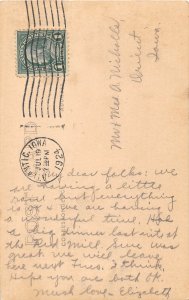 Mr & Mrs A. Nicholls,
Iowa.
ATLANTIC, IOWA
JUL 19
PM
1924
dear folks: we
are having a little
rain but everything
is o.k. we are having
a wonderful time. Had
a big dinner last nite at
the Red Mill. Sure was
great. we will leave
here next Tues. I think.
Hope you are both O.K.
Much love - Elizabeth